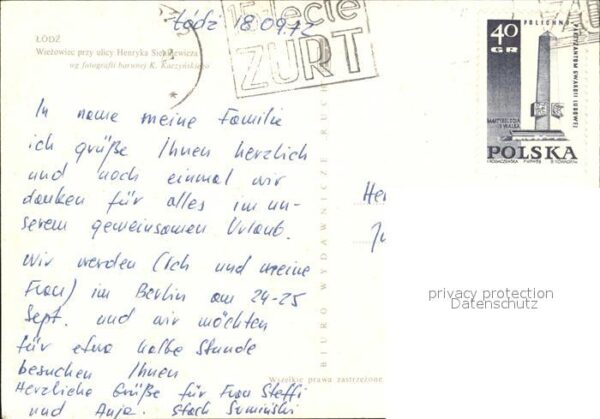 Łódź 18.09.72
15-lecie
ZURT
ŁÓDŹ
Wieżowiec przy ulicy Henryka Sienkiewicza
wg fotografii barwnej K. Kaczyńskiego
40
GR
POLICHNA
PARTYZANTOM GWARDII LUDOWEJ
MARTYROLOGIA
I WALKA
POLSKA
In name meine Familie
ich grüße Ihnen herzlich
und noch einmal wir
danken für alles im un-
serem gemeinsamen Urlaub.
Wir werden (Ich und meine
Frau) im Berlin am 24-25
Sept. und wir möchten
für etwa halbe Stunde
besuchen Ihnen
Herzliche Grüße für Frau Steffi
und Anja. Stach Sumiński
BIURO WYDAWNICZE RUCH
Wszelkie prawa zastrzeżone
Her
privacy protection
Datenschutz